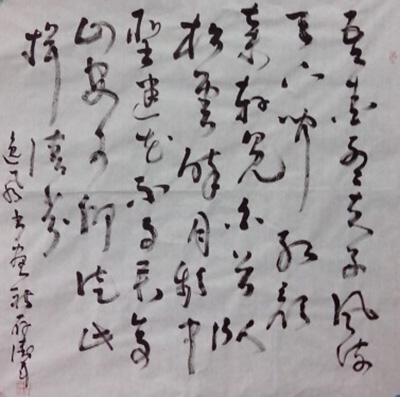 吾爱孟夫子风流
天下闻红颜
弃轩冕白首卧
松云醉月频中
圣迷花不事君高
山安可仰徒此
揖清芬